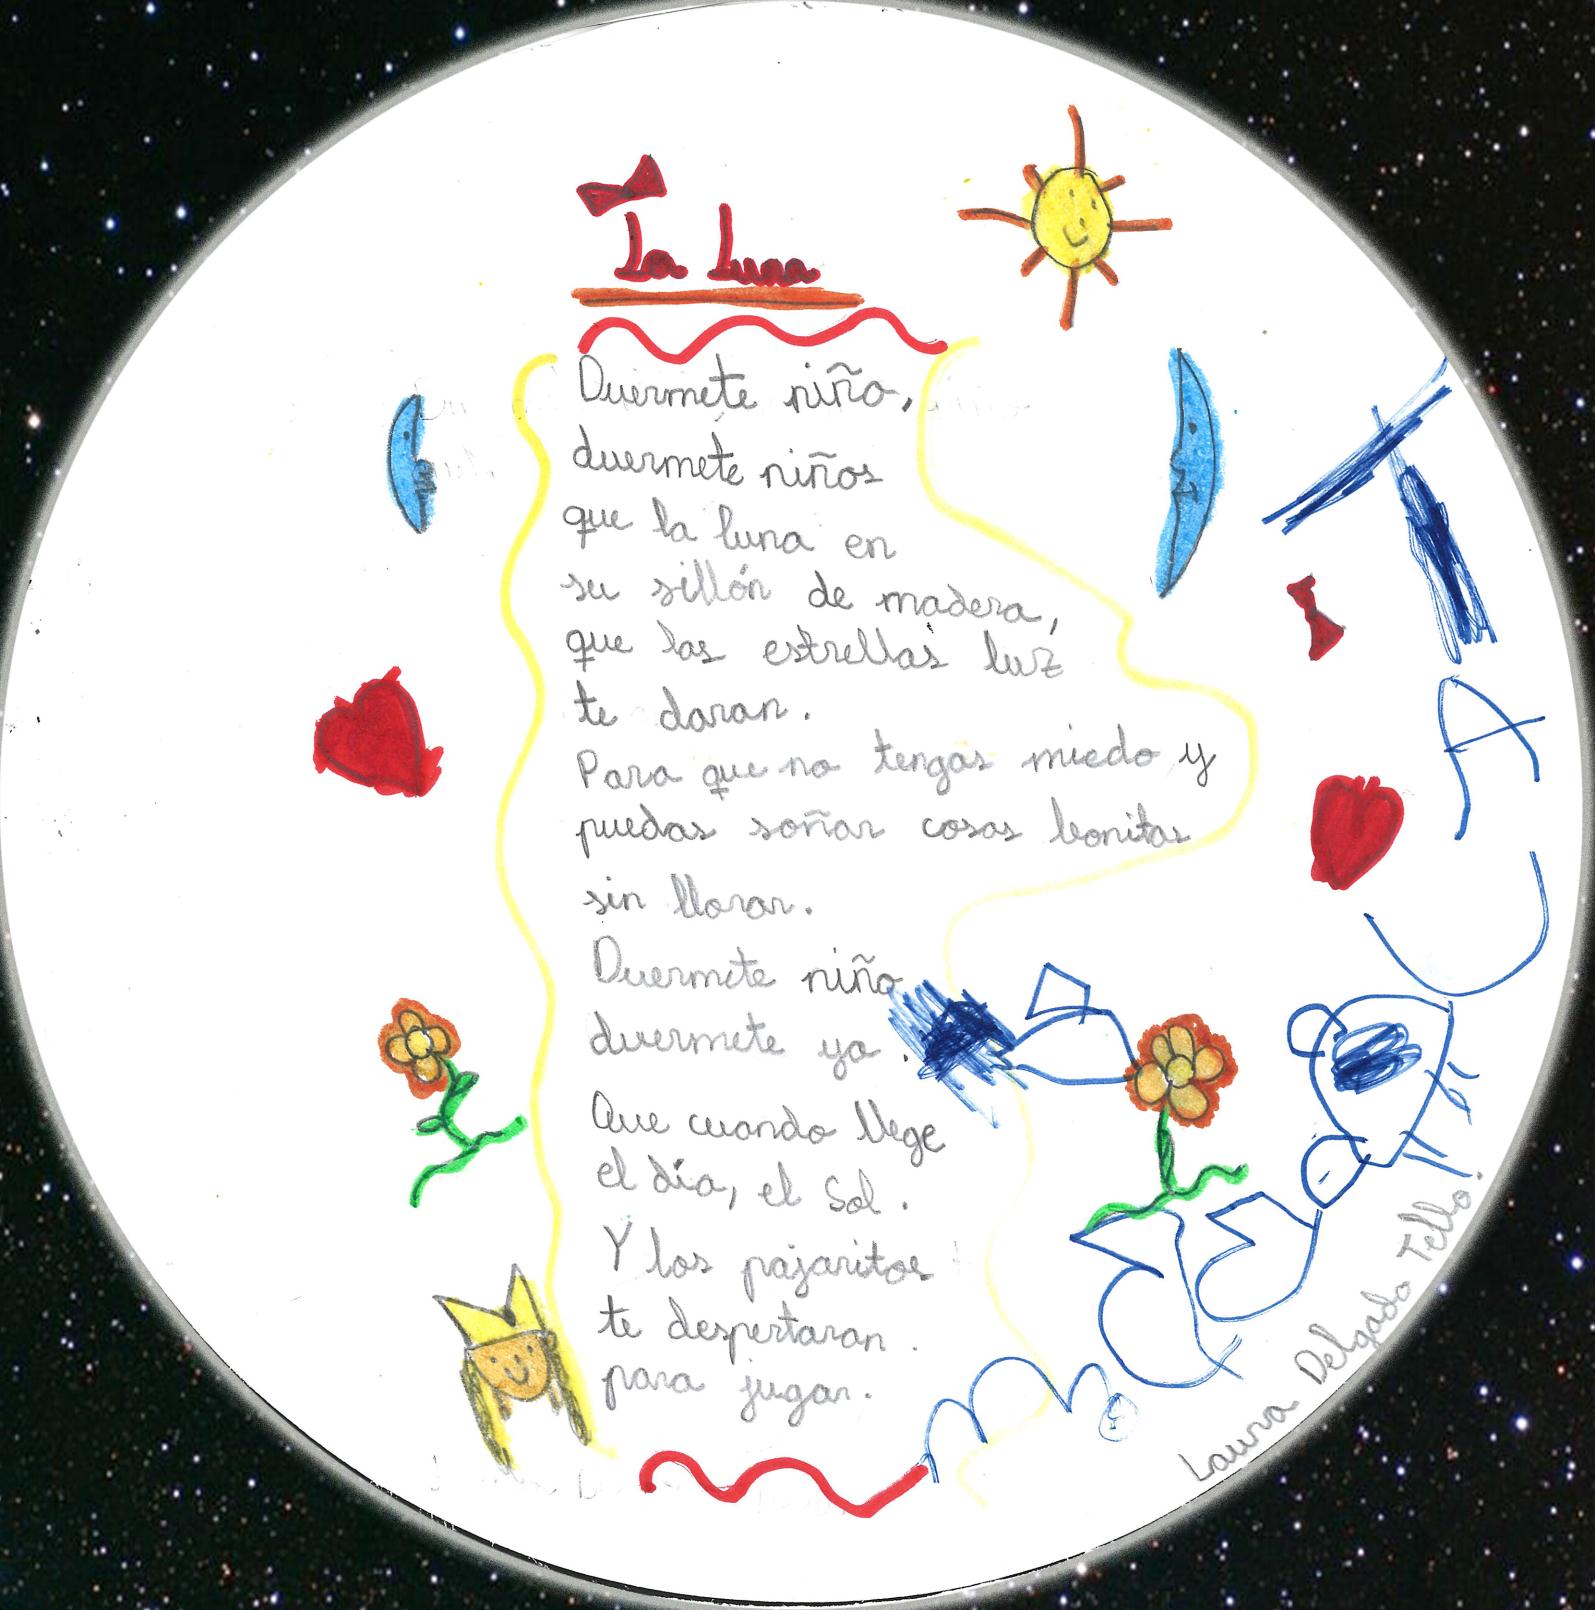 La Luna
Duermete niño,
duermete niños
que la luna en
su sillón de madera,
que las estrellas luz
te daran.
Para que no tengas miedo y
puedas soñar cosas bonitas
sin llorar.
Duermete niño
duermete ya.
Que cuando llege
el día, el Sol.
Y los pajaritos
te despertaran.
para jugar.
Laura Delgado Tello.